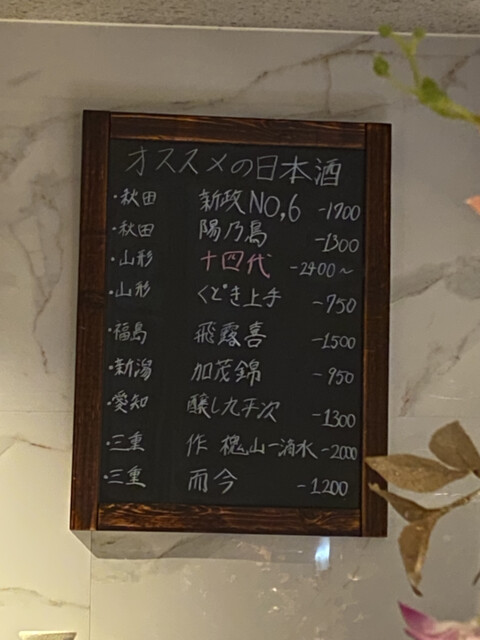 オススメの日本酒
・秋田 新政NO,6 -1700
・秋田 陽乃鳥 -1300
・山形 十四代 -2400～
・山形 くどき上手 -750
・福島 飛露喜 -1500
・新潟 加茂錦 -950
・愛知 醸し九平次 -1300
・三重 作 槐山一滴水 -2000
・三重 而今 -1200